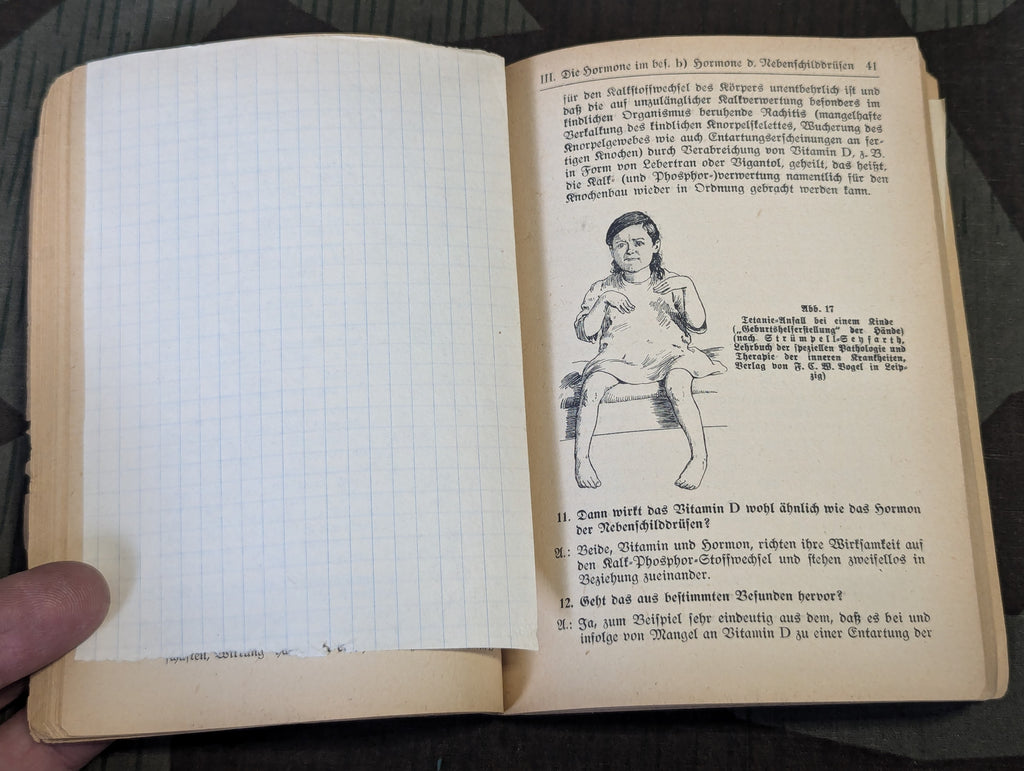 schaften, Wirkung
III. Die Hormone im bes. b) Hormone d. Nebenschilddrüsen 41
für den Kalkstoffwechsel des Körpers unentbehrlich ist und
daß die auf unzulänglicher Kalkverwertung besonders im
kindlichen Organismus beruhende Rachitis (mangelhafte
Verkalkung des kindlichen Knorpelskelettes, Wucherung des
Knorpelgewebes wie auch Entartungserscheinungen an fer-
tigen Knochen) durch Verabreichung von Vitamin D, z. B.
in Form von Lebertran oder Vigantol, geheilt, das heißt,
die Kalk- (und Phosphor-)verwertung namentlich für den
Knochenbau wieder in Ordnung gebracht werden kann.
Abb. 17
Tetanie-Anfall bei einem Kinde
(„Geburtshelferstellung“ der Hände)
(nach Strümpell-Seyfarth,
Lehrbuch der speziellen Pathologie und
Therapie der inneren Krankheiten,
Verlag von F. C. W. Vogel in Leip-
zig)
11. Dann wirkt das Vitamin D wohl ähnlich wie das Hormon
der Nebenschilddrüsen?
A.: Beide, Vitamin und Hormon, richten ihre Wirksamkeit auf
den Kalk-Phosphor-Stoffwechsel und stehen zweifellos in
Beziehung zueinander.
12. Geht das aus bestimmten Befunden hervor?
A.: Ja, zum Beispiel sehr eindeutig aus dem, daß es bei und
infolge von Mangel an Vitamin D zu einer Entartung der